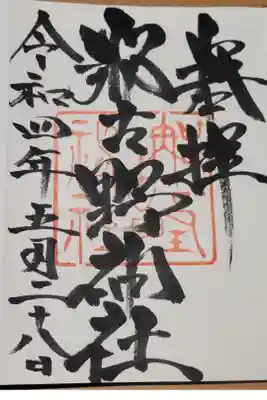 奉拝
那古野神社
令和四年五月二十八日